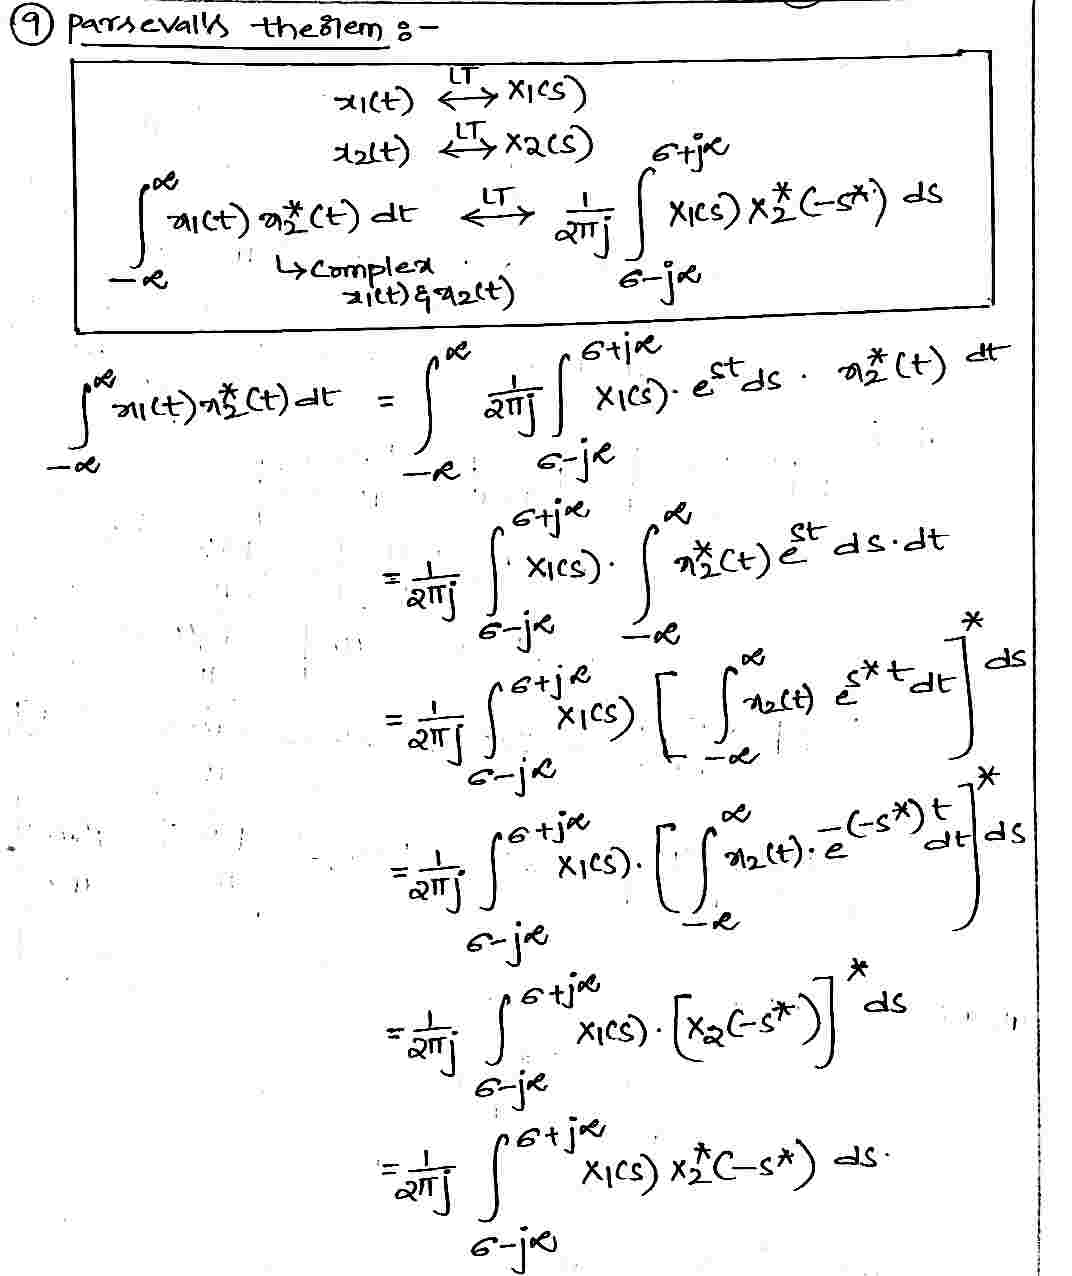 ⑨ Parseval's theorem :-
x1(t) <-LT-> X1(s)
x2(t) <-LT-> X2(s)
∫_{-∞}^{∞} x1(t) x2*(t) dt <-LT-> 1/2πj ∫_{σ-j∞}^{σ+j∞} X1(s) X2*(-s*) ds
↳ Complex
x1(t) & x2(t)
∫_{-∞}^{∞} x1(t) x2*(t) dt = ∫_{-∞}^{∞} 1/2πj ∫_{σ-j∞}^{σ+j∞} X1(s) . e^{st} ds . x2*(t) dt
= 1/2πj ∫_{σ-j∞}^{σ+j∞} X1(s) . ∫_{-∞}^{∞} x2*(t) e^{st} ds . dt
= 1/2πj ∫_{σ-j∞}^{σ+j∞} X1(s) . [ ∫_{-∞}^{∞} x2(t) e^{s*t} dt ]* ds
= 1/2πj ∫_{σ-j∞}^{σ+j∞} X1(s) . [ ∫_{-∞}^{∞} x2(t) . e^{-(-s*)t} dt ]* ds
= 1/2πj ∫_{σ-j∞}^{σ+j∞} X1(s) . [X2(-s*)]* ds
= 1/2πj ∫_{σ-j∞}^{σ+j∞} X1(s) X2*(-s*) ds.